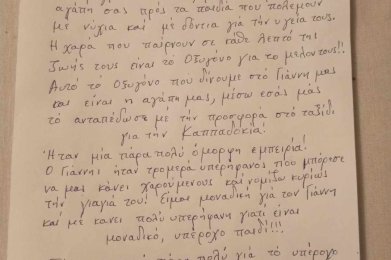 αγάπη σας πρός τα παιδιά που πολεμούν
με νύχια και με δόντια γιά την υγεία τους.
Η χαρά που παίρνουν σε κάθε λεπτό της
ζωής τους είναι το Οξυγόνο για το μέλλον τους!!
Αυτό το Οξυγόνο που δίνουμε στο Γιάννη μας
και είναι η αγάπη μας, μέσω εσάς μας
τό ανταπέδωσε με την προσφορά στο ταξίδι
για την Καππαδοκία.
Ήταν μία πάρα πολύ όμορφη εμπειρία!
Ο Γιάννης ήταν τρομερά υπερήφανος που μπόρεσε
να μας κάνει χαρούμενους και νομίζω κυρίως
την γιαγιά του! είμαι μοναδική γιά τον Γιάννη
και με κανει πολύ υπερήφανη γιατί ειναι
μοναδικό, υπέροχο παιδί!!!
πάρα πολύ για το υπέροχο